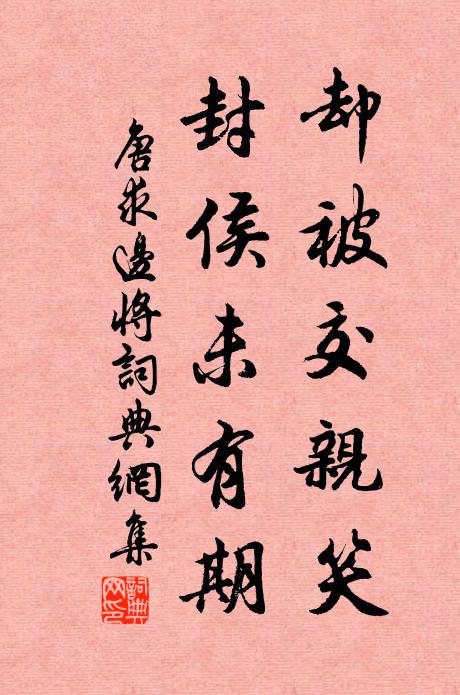 却被交親笑
封侯未有期
唐求邊將詞典網集
詞典網印